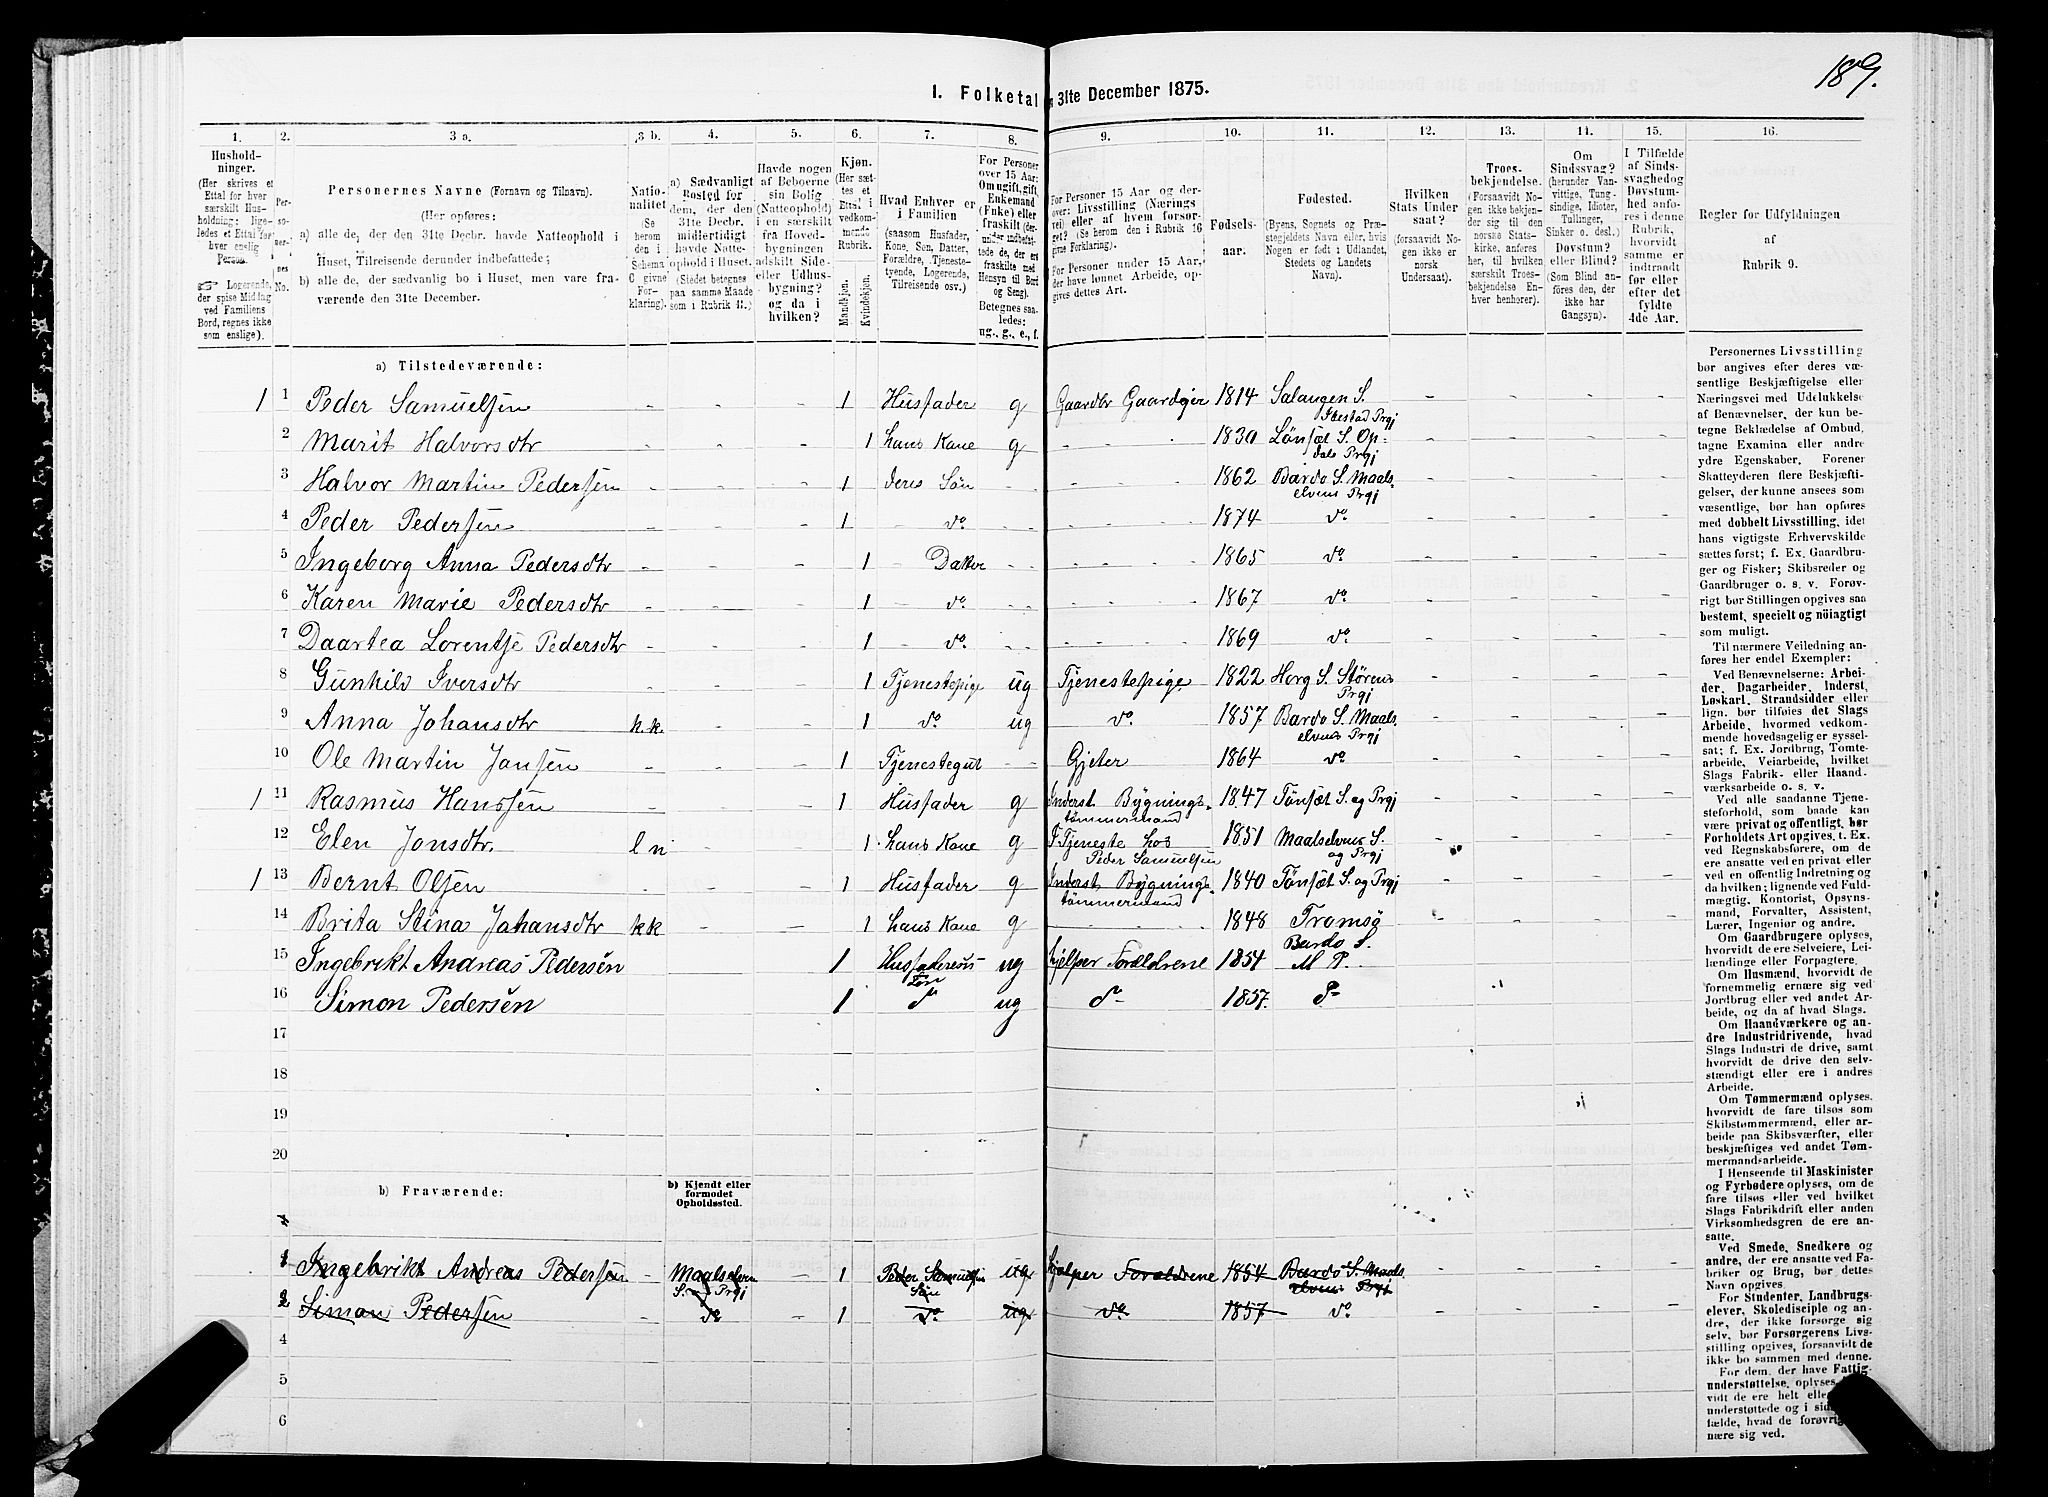 189.
1. Folketal 31te December 1875.
1. 2. 3 a. 3 b. 4. 5. 6. 7. 8. 9. 10. 11. 12. 13. 14. 15. 16.
Husholdninger.
(Her skrives et Ettal for hver særskilt Husholdning; ligeledes et Ettal for hver enslig Person.
☞ Logerende, der spise Middag ved Familiens Bord, regnes ikke som enslige).
Personernes No.
Personernes Navne (Fornavn og Tilnavn).
(Her opføres:
a) alle de, der den 31te Decbr. havde Natteophold i Huset, Tilreisende derunder indbefattede;
b) alle de, der sædvanlig bo i Huset, men vare fraværende den 31te December.
Nationalitet (Se herom den i Schema C givne Forklaring).
a) Sædvanligt Bosted for dem, der den 31te Decbr. midlertidigt havde Natteophold i Huset. (Stedet betegnes paa samme Maade som i Rubrik 11.)
Havde nogen af Beboerne sin Bolig (Natteophold) i en særskilt fra Hovedbygningen adskilt Side- eller Udhusbygning? og da i hvilken?
Kjøn. (Her sættes et Ettal i vedkommende Rubrik.
Mandkjøn. Kvindekjøn.
Hvad Enhver er i Familien (saasom Husfader, Kone, Søn, Datter, Forældre, Tjenestetyende, Logerende, Tilreisende osv.)
For Personer over 15 Aar: Om ugift, gift, Enkemand (Enke) eller fraskilt
Betegnes saaledes: ug., g., e., f.
For Personer 15 Aar og derover: Livsstilling (Næringsvei) eller af hvem forsørget? (Se herom den i Rubrik 16 givne Forklaring).
For Personer under 15 Aar, der have lønnet Arbeide, opgives dettes Art.
Fødselsaar.
Fødested. (Byens, Sognets og Præstegjeldets Navn eller, hvis Nogen er født i Udlandet, Stedets og Landets Navn).
Hvilken Stats Undersaat? (forsaavidt Nogen ikke er norsk Undersaat).
Troesbekjendelse. (Forsaavidt Nogen ikke bekjender sig til den norske Statskirke, anføres her, til hvilken særskilt Troesbekjendelse Enhver henhører).
Om Sindssvag? (herunder Vanvittige, Tungsindige, Idioter, Tullinger, Sinker o. desl.) Døvstum? eller Blind? (Som Blind anføres den, der ikke har Gangsyn).
I Tilfælde af Sindssvaghed og Døvstumhed anføres i denne Rubrik, hvorvidt samme er indtraadt før eller efter det fyldte 4de Aar.
Regler for Udfyldningen af Rubrik 9.
a) Tilstedeværende:
1 1 Peder Samuelsen - - - 1 Husfader g Gaardbr Gaardejer 1814 Salangen S. Ibestad Prgj
2 Marit Halvorsdtr - - - 1 hans Kone g 1830 Lønset S. Opdals Prgj
3 Halvor Martin Pedersen - - - 1 deres Søn 1862 Bardo S. Maalselvens Prgj
4 Peder Pedersen - - - 1 do 1874 do
5 Ingeborg Anna Pedersdtr - - - 1 Datter 1865 do
6 Karen Marie Pedersdtr - - - 1 do 1867 do
7 Daartea Lorentse Pedersdtr - - - 1 do 1869 do
8 Gunhild Iversdtr - - - 1 Tjenestepige ug Tjenestepige 1822 Horg S. Størens Prgj
9 Anna Johansdtr k.k. - - 1 do ug do 1857 Bardo S. Maalselvens Prgj
10 Ole Martin Jonsen - - - 1 Tjenestegut Gjeter 1864 do
1 11 Rasmus Hanssen - - - 1 Husfader g Inderst Bygningstømmermand 1847 Tönset S. og Prgj
12 Elen Jonsdtr. l n - - 1 hans Kone g I Tjeneste hos Peder Samuelsen 1851 Maalselvens S. og Prgj
1 13 Bernt Olsen - - - 1 Husfader g Inderst Bygningstømmermand 1840 Tönset S. og Prgj
14 Brita Stina Johansdtr kk - - 1 hans Kone g 1848 Tromsø
15 Ingebrikt Andreas Pedersen 1 Husfaderens Søn ug hjelper Forældrene 1854 Bardo S. M P.
16 Simon Pedersen 1 do ug do 1857. do
17
18
19
20
b) Fraværende:
b) Kjendt eller formodet Opholdssted.
1 Ingebrikt Andreas Pedersen - Maalselven S. og Prgj - 1 Peder Samuelsen Søn ug hjelper Forældrene 1854 Bardo S. Maalselvens Prgj
2 Simon Pedersen - do - 1 do ug do 1857 do
4
5
6
Personernes Livsstilling bør angives efter deres væsentlige Beskjæftigelse eller Næringsvei med Udelukkelse af Benævnelser, der kun betegne Beklædelse af Ombud, tagne Examina eller andre ydre Egenskaber. Forener Skatteyderen flere Beskjæftigelser, der kunne ansees som væsentlige, bør han opføres med dobbelt Livsstilling, idet hans vigtigste Erhvervskilde sættes først; f. Ex. Gaardbruger og Fisker; Skibsreder og Gaardbruger o. s. v. Forøvrigt bør Stillingen opgives saa bestemt, specielt og nöiagtigt som muligt.
Til nærmere Veiledning anføres her endel Exempler:
Ved Benævnelserne: Arbeider, Dagarbeider, Inderst, Løskarl, Strandsidder eller lign. bør tilføies det Slags Arbeide, hvormed vedkommende hovedsagelig er sysselsat; f. Ex. Jordbrug, Tomtearbeide, Veiarbeide, hvilket Slags Fabrik- eller Haandværksarbeide o. s. v.
Ved alle saadanne Tjenesteforhold, som baade kan være privat og offentligt, bør Forholdets Art opgives, t. Ex. ved Regnskabsførere, om de ere ansatte ved en privat eller ved en offentlig Indretning og da hvilken; lignende ved Fuldmægtig, Kontorist, Opsynsmand, Forvalter, Assistent, Lærer, Ingeniør og andre.
Om Gaardbrugere oplyses, hvorvidt de ere Selveiere, Leilændinge eller Forpagtere.
Om Husmænd, hvorvidt de fornemmelig ernære sig ved Jordbrug eller ved andet Arbeide, og da af hvad Slags.
Om Haandværkere og andre Industridrivende, hvad Slags Industri de drive, samt hvorvidt de drive den selvstændigt eller ere i andres Arbeide.
Om Tømmermænd oplyses, hvorvidt de fare tilsøs som Skibstømmermænd, eller arbeide paa Skibsværfter, eller beskjæftiges ved andet Tømmermandsarbeide.
I Henseende til Maskinister og Fyrbødere oplyses, om de fare tilsøs eller ved hvilket Slags Fabrikdrift eller anden Virksomhedsgren de ere ansatte.
Ved Smede, Snedkere og andre, der ere ansatte ved Fabriker og Brug, bør dettes Navn opgives
For Studenter, Landbrugselever, Skoledisciple og andre, der ikke forsørge sig selv, bør Forsørgerens Livsstilling opgives, forsaavidt de ikke bo sammen med denne.
For dem, der have Fattigunderstøttelse, oplyses